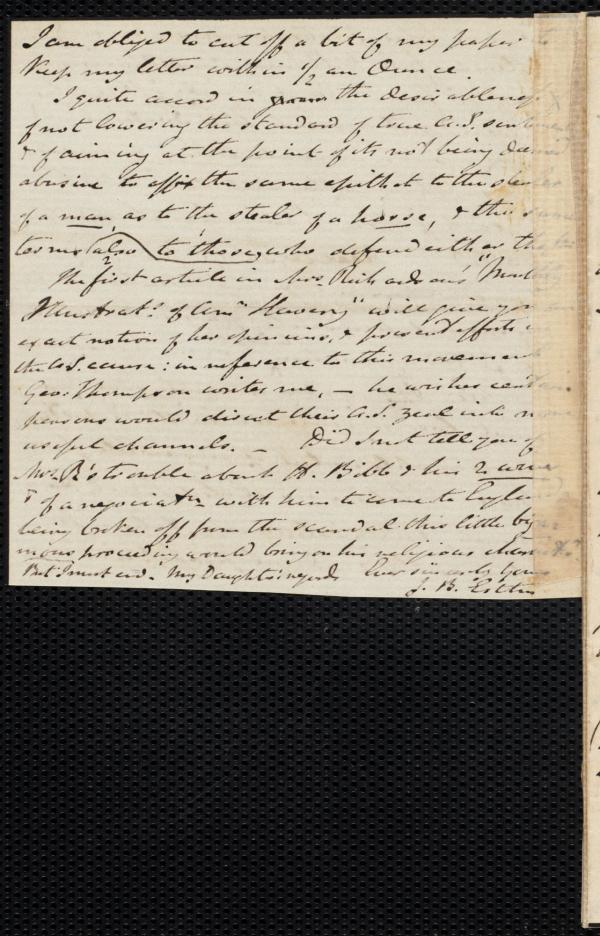 I am obliged to cut off a bit of my paper to
Keep my letter within 1/2 an Ounce.
I quite accord in the desirableness
of not lowering the standard of true A.S. sentiment
& of aiming at the point of its not being deemed
abusive to affix the same epithet to the stealer
of a man, as to the stealer of a horse, & the same
terms also to those, who defend either the
The first article in Mrs. Richardson's "
Illustratns. of Amn Slavery" will give you an
exact notion of her opinions, & present efforts in
the A.S. cause: in reference to this movement
Geo. Thompson writes me, — he wishes certain
persons would direct their A.S. zeal into more
useful channels. — Did I not tell you of
Mrs. R's trouble about H. Bibb & his 2 wives
& of a negociatn with him to come to England
being broken off from the scandal this little biga-
mous proceeding would bring on his religious charactr.
But I must end. My Daughter's regards Ever sincerely Yours
J. B. Estlin